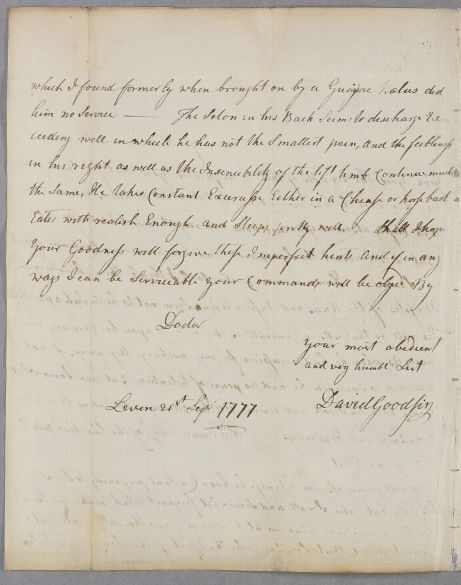 which I found formerly when brought on by a Guajac Bolus did
him no Service — The Seton in his Back Seems to discharge Ex-
ceeding well in which he has not the Smallest pain, and the feebleness
in his right as well as the Insencibility of the left limb Continue much
the same, He takes Constant Excersise Either in a Chease or horsback
Eates with realish Enough and Sleeps pretty well
Your Goodness will forgive these Imperfect hints And if in any
ways I can be Serviceable your Commands will be oblye By
Doctor
your most obedient
and very humbl Sert
Leven 21st Sepr 1777
David Goodsir